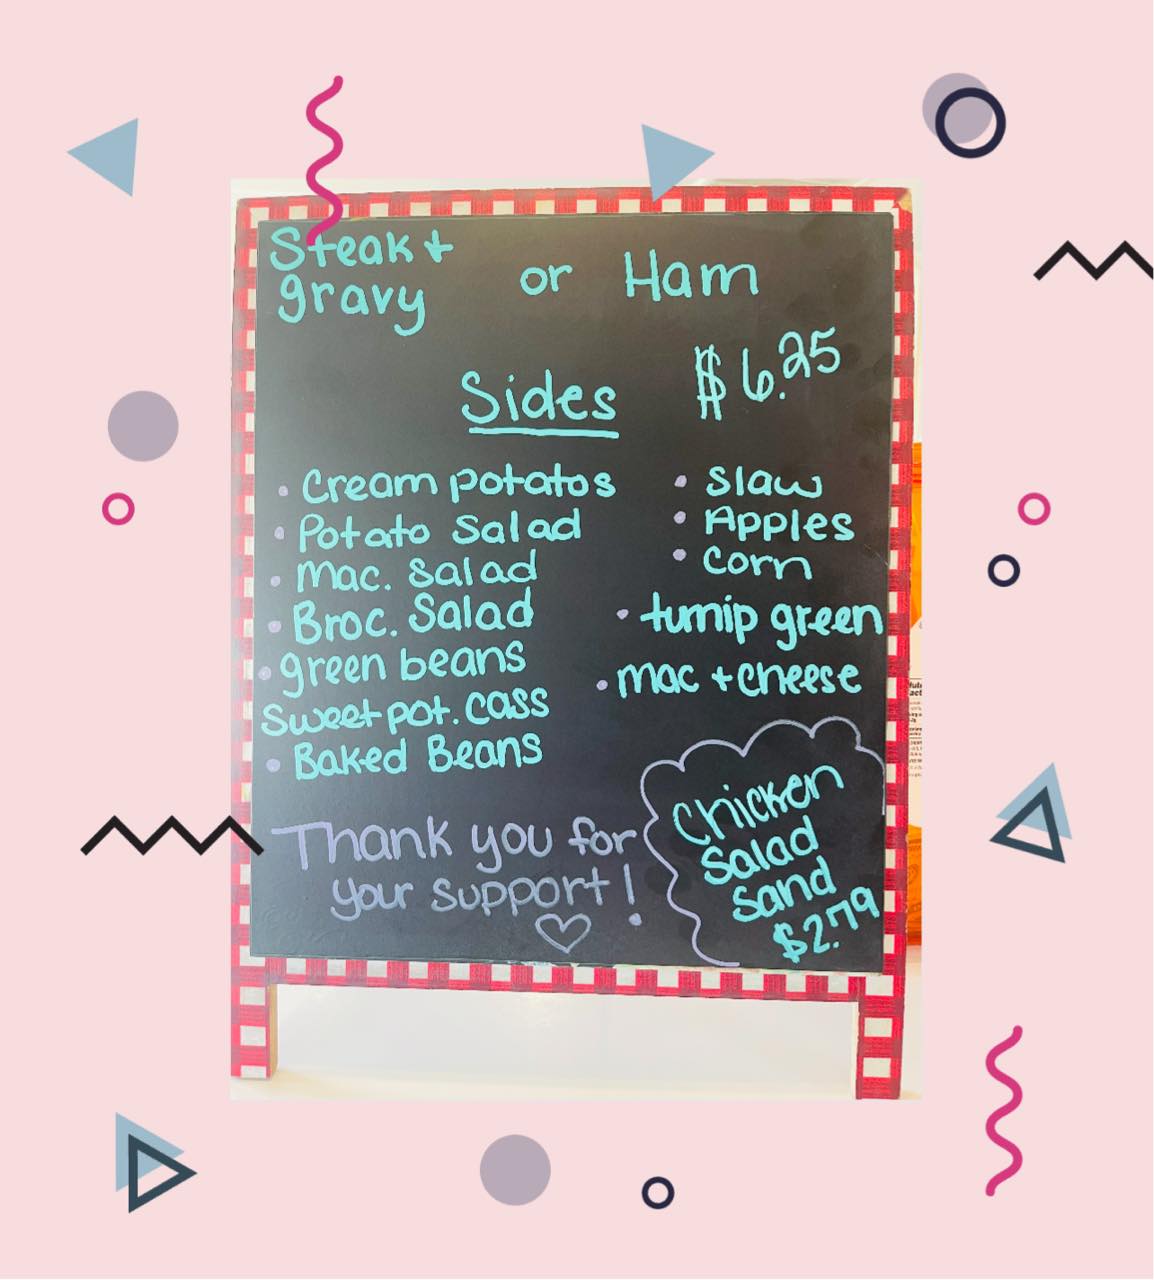 Steak +
gravy
or Ham
$6.25
Sides
• Cream potatos
• Potato Salad
• Mac. Salad
• Broc. Salad
• green beans
Sweet pot. Cass
• Baked Beans
• Slaw
• Apples
• Corn
• turnip green
• mac + cheese
Thank you for
your support!
Chicken
Salad
Sand
$2.79